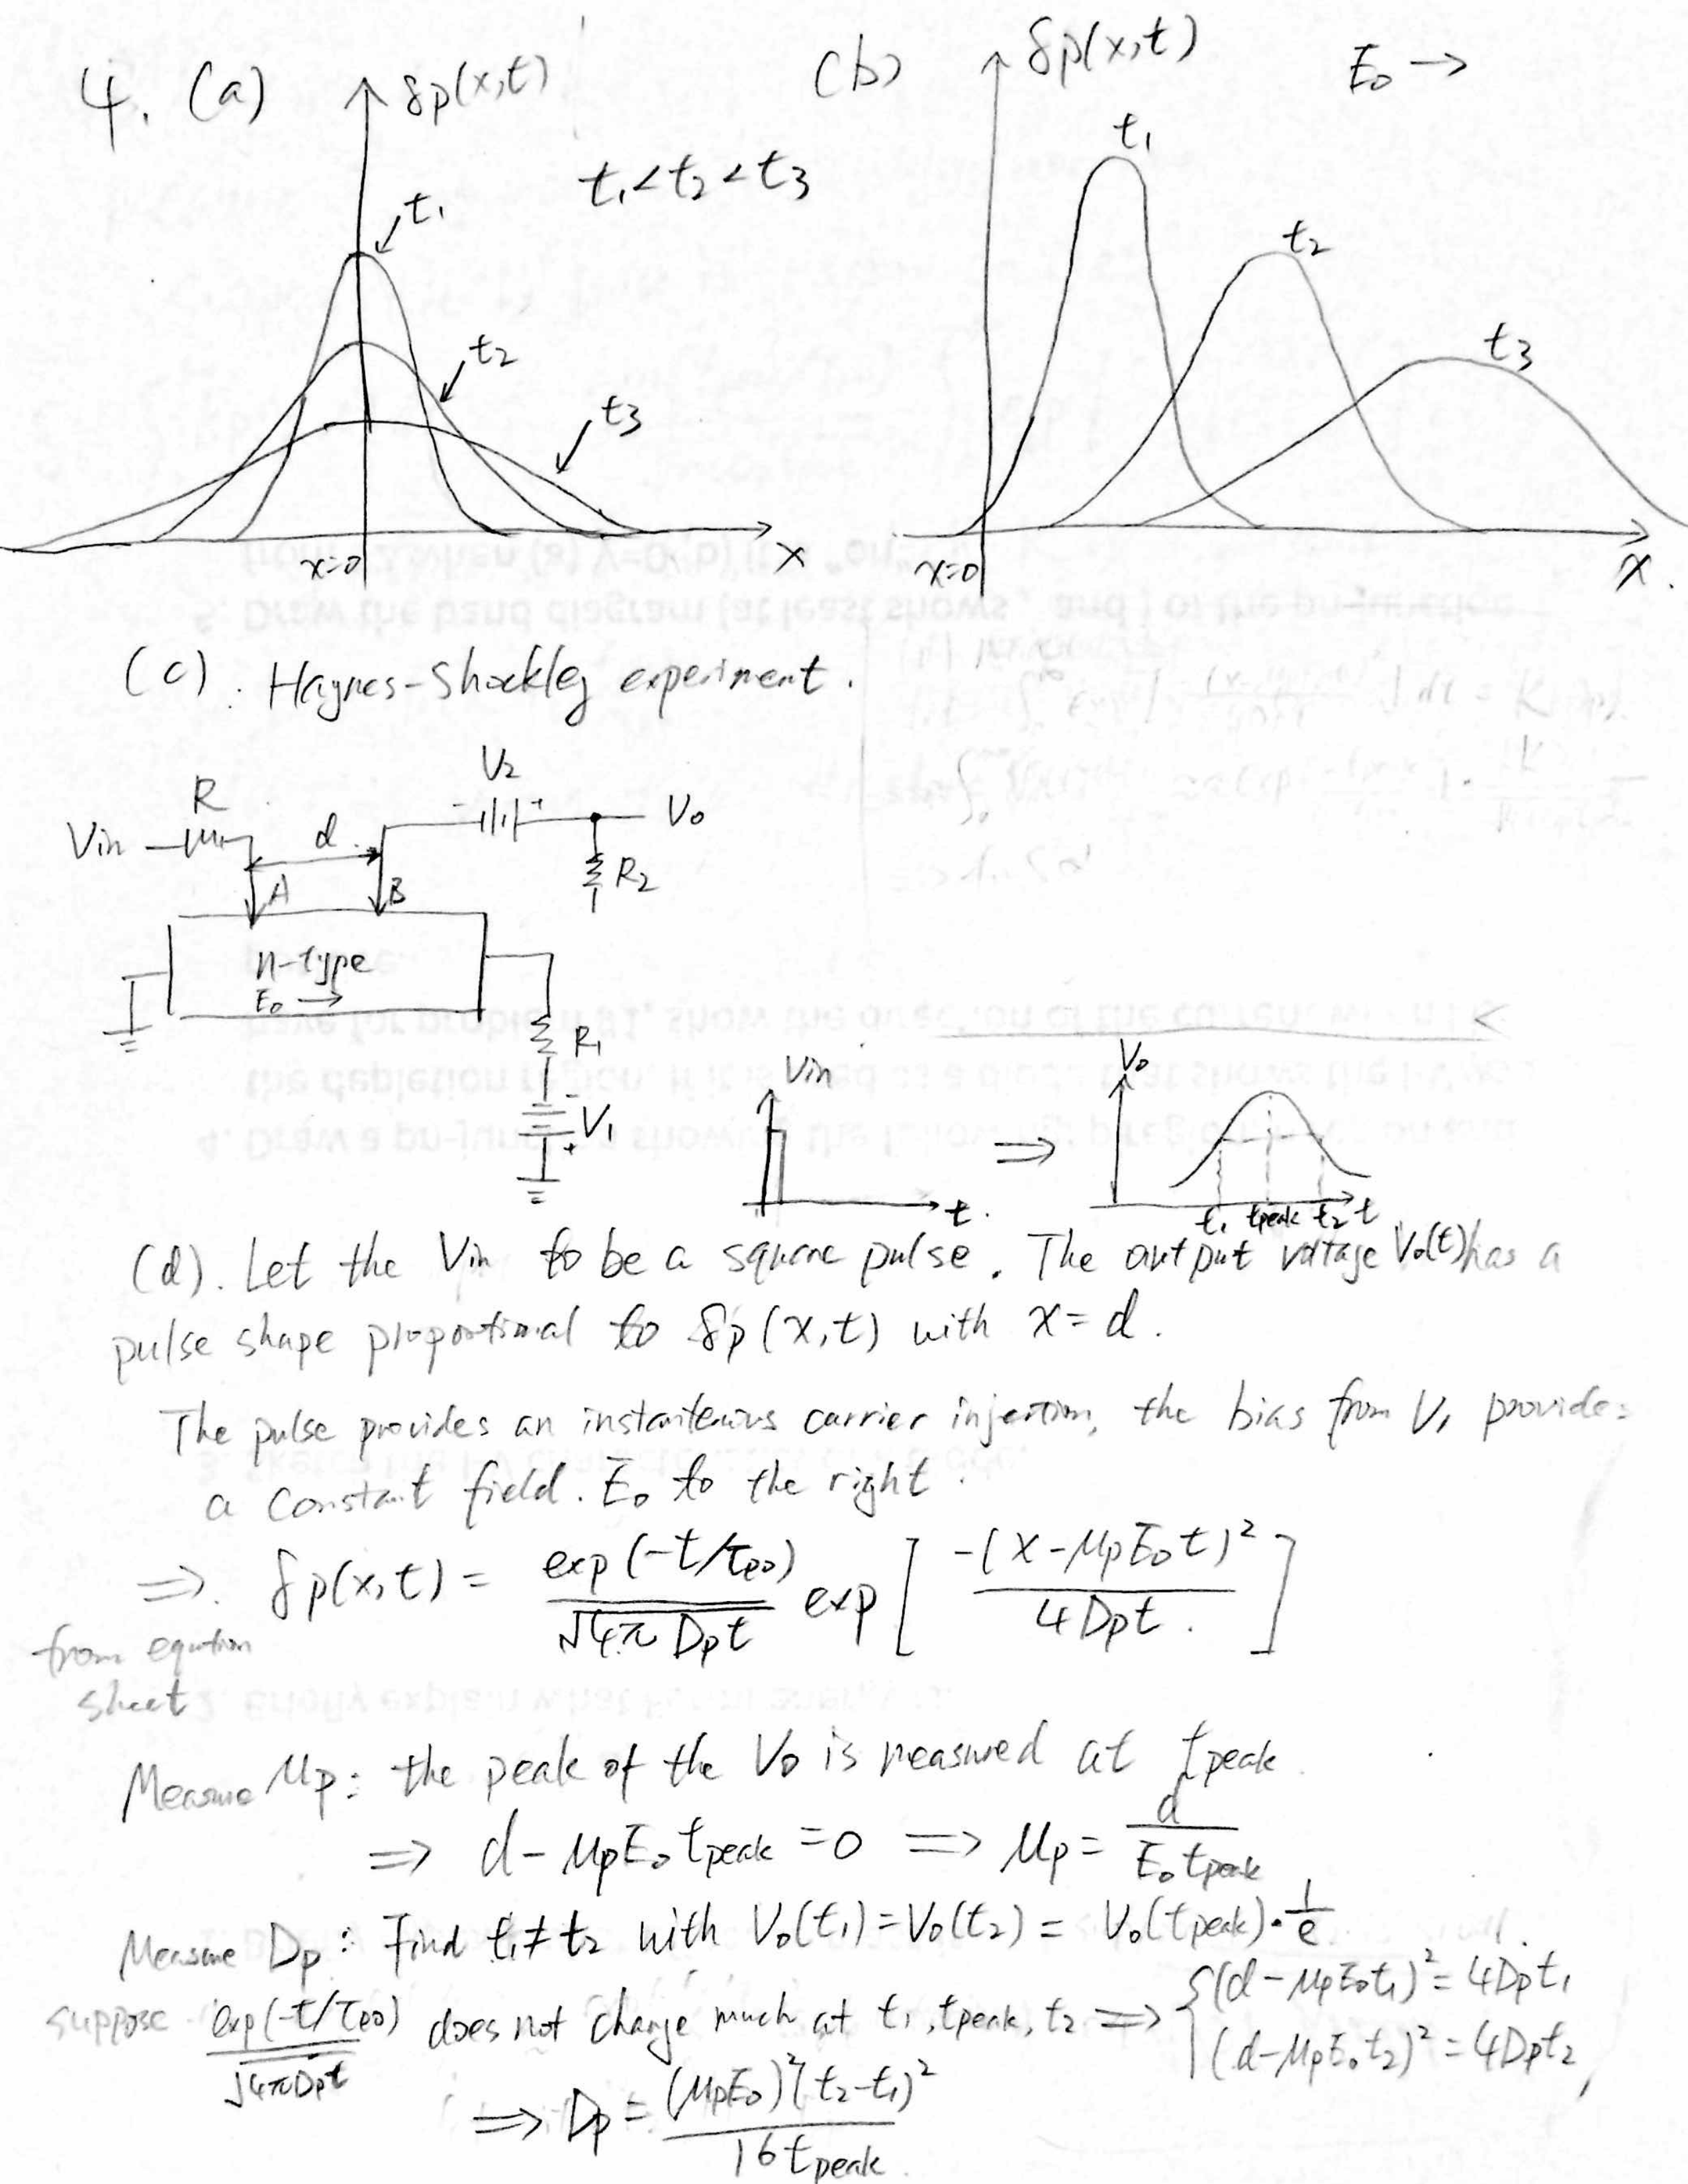 4. (a) δp(x,t)
t₁ < t₂ < t₃
t₁
t₂
t₃
x=0
x
(b) δp(x,t) E₀ →
t₁
t₂
t₃
x=0
x.
(c). Haynes-Shockley experiment.
Vin R d V₂ - + V₀
A B R₂
n-type
E₀ →
R₁
- V₁ +
Vin ⇒ V₀
t. t₁ tpeak t₂ t
(d). Let the Vin to be a square pulse. The output voltage V₀(t) has a
pulse shape proportional to δp(x,t) with x=d.
The pulse provides an instantenious carrier injection, the bias from V₁ provides
a constant field. E₀ to the right.
⇒. δp(x,t) = exp(-t/τp0) / √(4πDpt) exp[ -(x-μpE₀t)² / 4Dpt. ]
from equation
sheet
Measure μp: the peak of the V₀ is measured at tpeak.
⇒ d-μpE₀tpeak = 0 ⇒ μp = d / E₀tpeak
Measure Dp: Find t₁≠t₂ with V₀(t₁)=V₀(t₂)= V₀(tpeak)·1/e
suppose exp(-t/τp0) / √(4πDpt) does not change much at t₁, tpeak, t₂ ⇒ { (d-μpE₀t₁)² = 4Dpt₁
(d-μpE₀t₂)² = 4Dpt₂,
⇒ Dp = (μpE₀)²(t₂-t₁)² / 16tpeak.